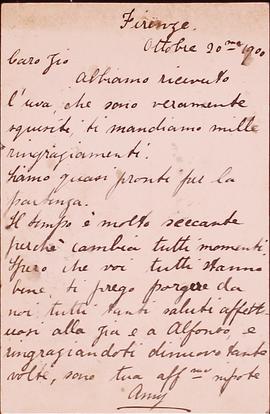 Firenze.
Ottobre 20 me 1900
Caro Zio
Abbiamo ricevuto
l'uva, che sono veramente
squisiti, ti mandiamo mille
ringraziamenti.
Siamo quasi pronti per la
partenza.
Il tempo è molto seccante
perchè cambia tutti momenti.
Spero che voi tutti stanno
bene, ti prego porgere da
noi tutti tanti saluti affett-
uosi alla zia e a Alfonso, e
ringraziandoti di nuovo tante
volte, sono tua aff me nipote
Amy